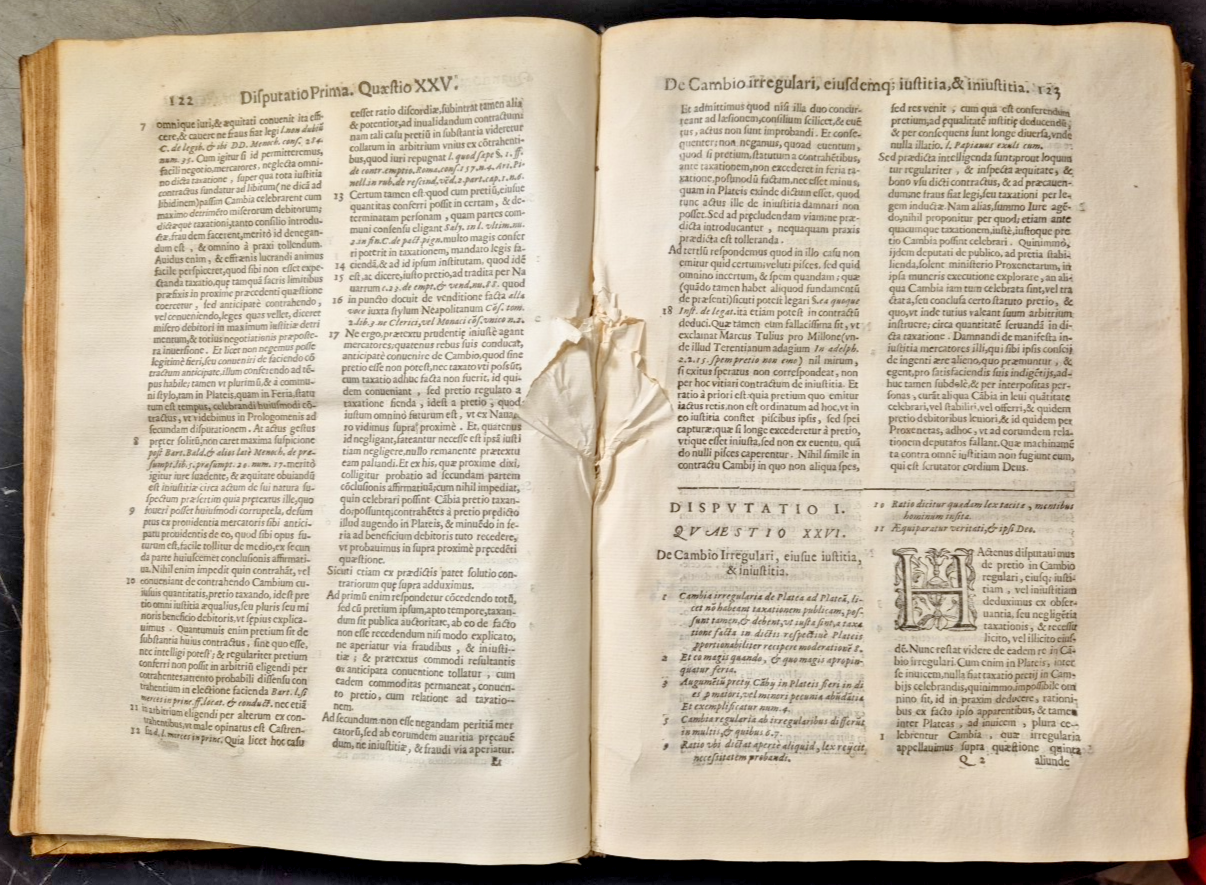 122 Disputatio Prima. Quæstio XXV.
7 omnique iuri, & æquitati conuenit ita effi-
cere, & cauere ne fraus fiat legi l. non dubiũ
C. de legib. & ibi DD. Menoch. cons. 284.
num. 35. Cum igitur si id permitteremus,
facili negotio, mercatores, neglecta omni-
no dicta taxatione, super qua tota iustitia
contractus fundatur ad libitum (ne dicã ad
libidinem) passim Cambia celebrarent cum
maximo detrimẽto miserorum debitorum;
dictæque taxationi, tanto consilio introdu-
ctæ, fraudem facerent, meritò id denegan-
dum est, & omnino à praxi tollendum.
Auidus enim, & effrænis lucrandi animus
facile perspiceret, quod sibi non esset expe-
ctanda taxatio, quę tamquã sacris limitibus
præfixis in proxime præcedenti quæstione
coercetur, sed anticipatè contrahendo,
vel conueniendo, leges quas vellet, diceret
misero debitori in maximum iustitiæ detri
mentum, & totius negotiationis præposte-
ra inuersione. Et licet non negemus posse
legitimè fieri, seu conueniri de faciendo cõ
tractum anticipatè, illum conferendo ad tẽ-
pus habile; tamen vt plurimũ, & à commu-
ni stylo, tam in Plateis, quam in Feria, statu
tum est tempus, celebrandi huiusmodi cõ-
tractus, vt videbimus in Prologomenis ad
secundam disputationem. At actus gestus
8 pręter solitũ, non caret maxima suspicione
post Bart. Bald. & alios latè Menoch. de præ-
sumpt. lib. 5. præsumpt. 20. num. 17. meritò
igitur iure suadente, & æquitate obuiandũ
est iniustitiæ circa actum de sui natura su-
spectum præsertim quia prętextus ille, quo
9 foueri posset huiusmodi corruptela, desum
ptus ex prouidentia mercatoris sibi antici-
patu prouidentis de eo, quod sibi opus fu-
turum est, facile tollitur de medio, ex secun
da parte huiuscemet conclusionis affirmati-
ua. Nihil enim impedit quin contrahãt, vel
10 conueniant de contrahendo Cambium cu-
iusuis quantitatis, pretio taxando, idest pre
tio omni iustitia æqualius, seu pluris seu mi
noris beneficio debitoris, vt sępius explica-
uimus. Quantumuis enim pretium sit de
substantia huius contractus, sine quo esse,
nec intelligi potest; & regulariter pretium
conferri non possit in arbitriũ eligendi per
cotrahentes attento probabili dissensu con
trahentium in electione facienda Bart. l. si
merces in princ. ff. locat. & conduct. nec etiã
11 in arbitrium eligendi per alterum ex con-
trahentibus, vt male opinatus est Castren-
12 sis d. l. merces in princ. Quia licet hoc casu
cesset ratio discordiæ, subintrat tamen alia
& potentior, ad inualidandum contractum
nam tali casu pretiũ in substantia videretur
collatum in arbitrium vnius ex cõtrahenti-
bus, quod iuri repugnat l. quod sæpe §. 1. ff.
de contr. emptio. Roma. cons. 157. n. 4. Ant. Pi-
nell. in rub. de rescind. vẽd. 2. part. cap. 1. n. 6.
13 Certum tamen est quod cum pretiũ, eiusue
quantitas conferri possit in certam, & de-
terminatam personam, quam partes com-
muni consensu eligant Saly. in l. vltim. nu.
2. in fin. C. de pact. pign. multo magis confer
ri poterit in taxationem, mandato legis fa-
14 ciendã, & ad id ipsum institutam, quod idẽ
15 est, ac dicere, iusto pretio, ad tradita per Na
uarrum c. 23. de empt. & vend. nu. 88. quod
16 in puncto docuit de venditione facta alla
voce iuxta stylum Neapolitanum Cõs. tom.
2. lib. 3. ne Clerici, vel Monaci cõs. vnico n. 2.
17 Ne ergo, prætextu prudentię iniustè agant
mercatores; quatenus rebus suis conducat,
anticipatè conuenire de Cambio, quod sine
pretio esse non potest, nec taxato vti possũt,
cum taxatio adhuc facta non fuerit, id qui-
dem conueniant, sed pretio regulato a
taxatione fienda, idest a pretio, quod
iustum omninò futurum est, vt ex Natur
ro vidimus supra proximè. Et quatenus
id negligant, fateantur necesse est ipsã iusti
tiam negligere, nullo remanente prætextu
eam paliandi. Et ex his, quæ proximè dixi,
colligitur probatio ad secundam partem
cõclusionis affirmatiuã; cum nihil impediat,
quin celebrari possint Cãbia pretio taxan-
do; possuntq; contrahẽtes à pretio prędicto
illud augendo in Plateis, & minuẽdo in fe-
ria ad beneficium debitoris tuto recedere,
vt probauimus in supra proximè pręcedẽti
quæstione.
Sicuti etiam ex prædictis patet solutio con-
trariorum quę supra adduximus.
Ad primũ enim respondetur cõcedendo totũ,
sed cũ pretium ipsum, apto tempore, taxan-
dum sit publica auctoritate, ab eo de facto
non esse recedendum nisi modo explicato,
ne aperiatur via fraudibus, & iniusti-
tiæ; & prætextus commodi resultantis
ex anticipata conuentione tollatur, cum
eadem commoditas permaneat, conuen-
to pretio, cum relatione ad taxatio-
nem.
Ad secundum non esse negandam peritiã mer
catorũ, sed ab eorundem auaritia pręcauẽ
dum, ne iniustitiæ, & fraudi via aperiatur.
Et
De Cambio irregulari, eiusdemq; iustitia, & iniustitia. 123
Et admittimus quod nisi illa duo concur-
reant ad læsionem, consilium scilicet, & euẽ
tus, actus non sunt improbandi. Et conse-
quenter; non negamus, quoad euentum,
quod si pretium, statutum a contrahẽtibus,
ante taxationem, non excederet in feria ta-
xatione, posmodũ factam, nec esset minus,
quam in Plateis exinde dictum esset, quod
tunc actus ille de iniustitia damnari non
posset. Sed ad pręcludendam viam, ne præ-
dicta introducantur, nequaquam praxis
prædicta est tolleranda.
Ad tertiũ respondemus quod in illo casu non
emitur quid certum, veluti pisces, sed quid
omnino incertum, & spem quandam; quæ
(quãdo tamen habet aliquod fundamentũ
de præsenti) sicuti potest legari §. ea quoque
18 Inst. de legat. ita etiam potest in contractũ
deduci. Quæ tamen cum fallacissima sit, vt
exclamat Marcus Tulius pro Milone (vn-
de illud Terentianum adagium In adelph.
2. 2. 15. spem pretio non eme) nil mirum,
si exitus speratus non correspondeat, non
per hoc vitiari contractum de iniustitia. Et
ratio à priori est: quia pretium quo emitur
iactus retis, non est ordinatum ad hoc, vt in
eo iustitia constet piscibus ipsis, sed spei
capturæ; quæ si longe excederetur à pretio,
vtique esset iniusta, sed non ex euentu, quã
do nulli pisces caperentur. Nihil simile in
contractu Cambij in quo non aliqua spes,
sed res venit, cum qua est conferendum
pretium, ad equalitatẽ iustitię deducendũ;
& per consequens sunt longe diuersa, vnde
nulla illatio. l. Papianus exuli cum.
Sed prædicta intelligenda sunt, prout loquun
tur regulariter, & inspecta æquitate, &
bono vsu dicti contractus, & ad præcauen-
dumne fraus fiat legi, seu taxationi per le-
gem inductæ. Nam alias, summo Iure agẽ-
do, nihil proponitur per quod; etiam ante
quacumque taxationem, iustè, iustoque pre
tio Cambia possint celebrari. Quinimmò,
ijdem deputati de publico, ad pretia stabi-
lienda, solent ministerio Proxenetarum, in
ipsa muneris executione explorare, an ali-
qua Cambia iam tum celebrata sint, vel tra
ctata, seu conclusa certo statuto pretio, &
quo, vt inde tutius valeant suum arbitrium
instruere; circa quantitatẽ seruandã in di-
cta taxatione. Damnandi de manifesta in-
iustitia mercatores illi, qui sibi ipsis conscij
de ingenti ære alieno, quo præmuntur, &
egent, pro satisfaciendis suis indigẽtijs, ad-
huc tamen subdolè, & per interpositas per-
sonas, curãt aliqua Cãbia in leui quãtitate
celebrari, vel stabiliri, vel offerri, & quidem
pretio debitoribus leuiori, & id quidem per
Proxenetas, adhoc, vt ad eorundem rela-
tionem deputatos fallant. Quæ machinamẽ
ta contra omnẽ iustitiam non fugiunt eum,
qui est scrutator cordium Deus.
DISPVTATIO I.
QVAESTIO XXVI.
De Cambio Irregulari, eiusue iustitia,
& iniustitia.
1 Cambia irregularia de Platea ad Plateã, li-
cet nõ habeant taxationem publicam, pos-
sunt tamen, & debent, vt iusta sint, a taxa
tione facta in dictis respectiuè Plateis
apportionabiliter recipere moderationẽ 8.
2 Et eo magis quando, & quo magis apropin-
quatur feria.
3 Augumẽtũ pretij Cãby in Plateis fieri in di
es, pro maiori, vel minori pecunia abũdãtia
Et exemplificatur num. 4.
5 Cambia regularia ab irregularibus differũt
in multis, & quibus 6. 7.
9 Ratio vbi dictat apertè aliquid, lex reijcit
necessitatem probandi.
10 Ratio dicitur quædam lex tacita, mentibus
hominum insita.
11 Æquiparatur veritati, & ipsi Deo.
HActenus disputauimus
de pretio in Cambio
regulari, eiusq; iusti-
tiam, vel iniustitiam
deduximus ex obser-
uantia, seu negligẽtia
taxationis, & recessu
licito, vel illicito eius-
dẽ. Nunc restat videre de eadem re in Cã-
bio irregulari. Cum enim in Plateis, inter
se inuicem, nulla fiat taxatio pretij in Cam-
bijs celebrandis, quinimmo, impossibile om
nino sit, id in praxim deducere, rationi-
bus ex facto ipso apparentibus, & tamen
inter Plateas, ad inuicem, plura ce-
1 lebrentur Cambia, quæ irregularia
appellauimus supra quæstione quinta
Q 2 aliunde